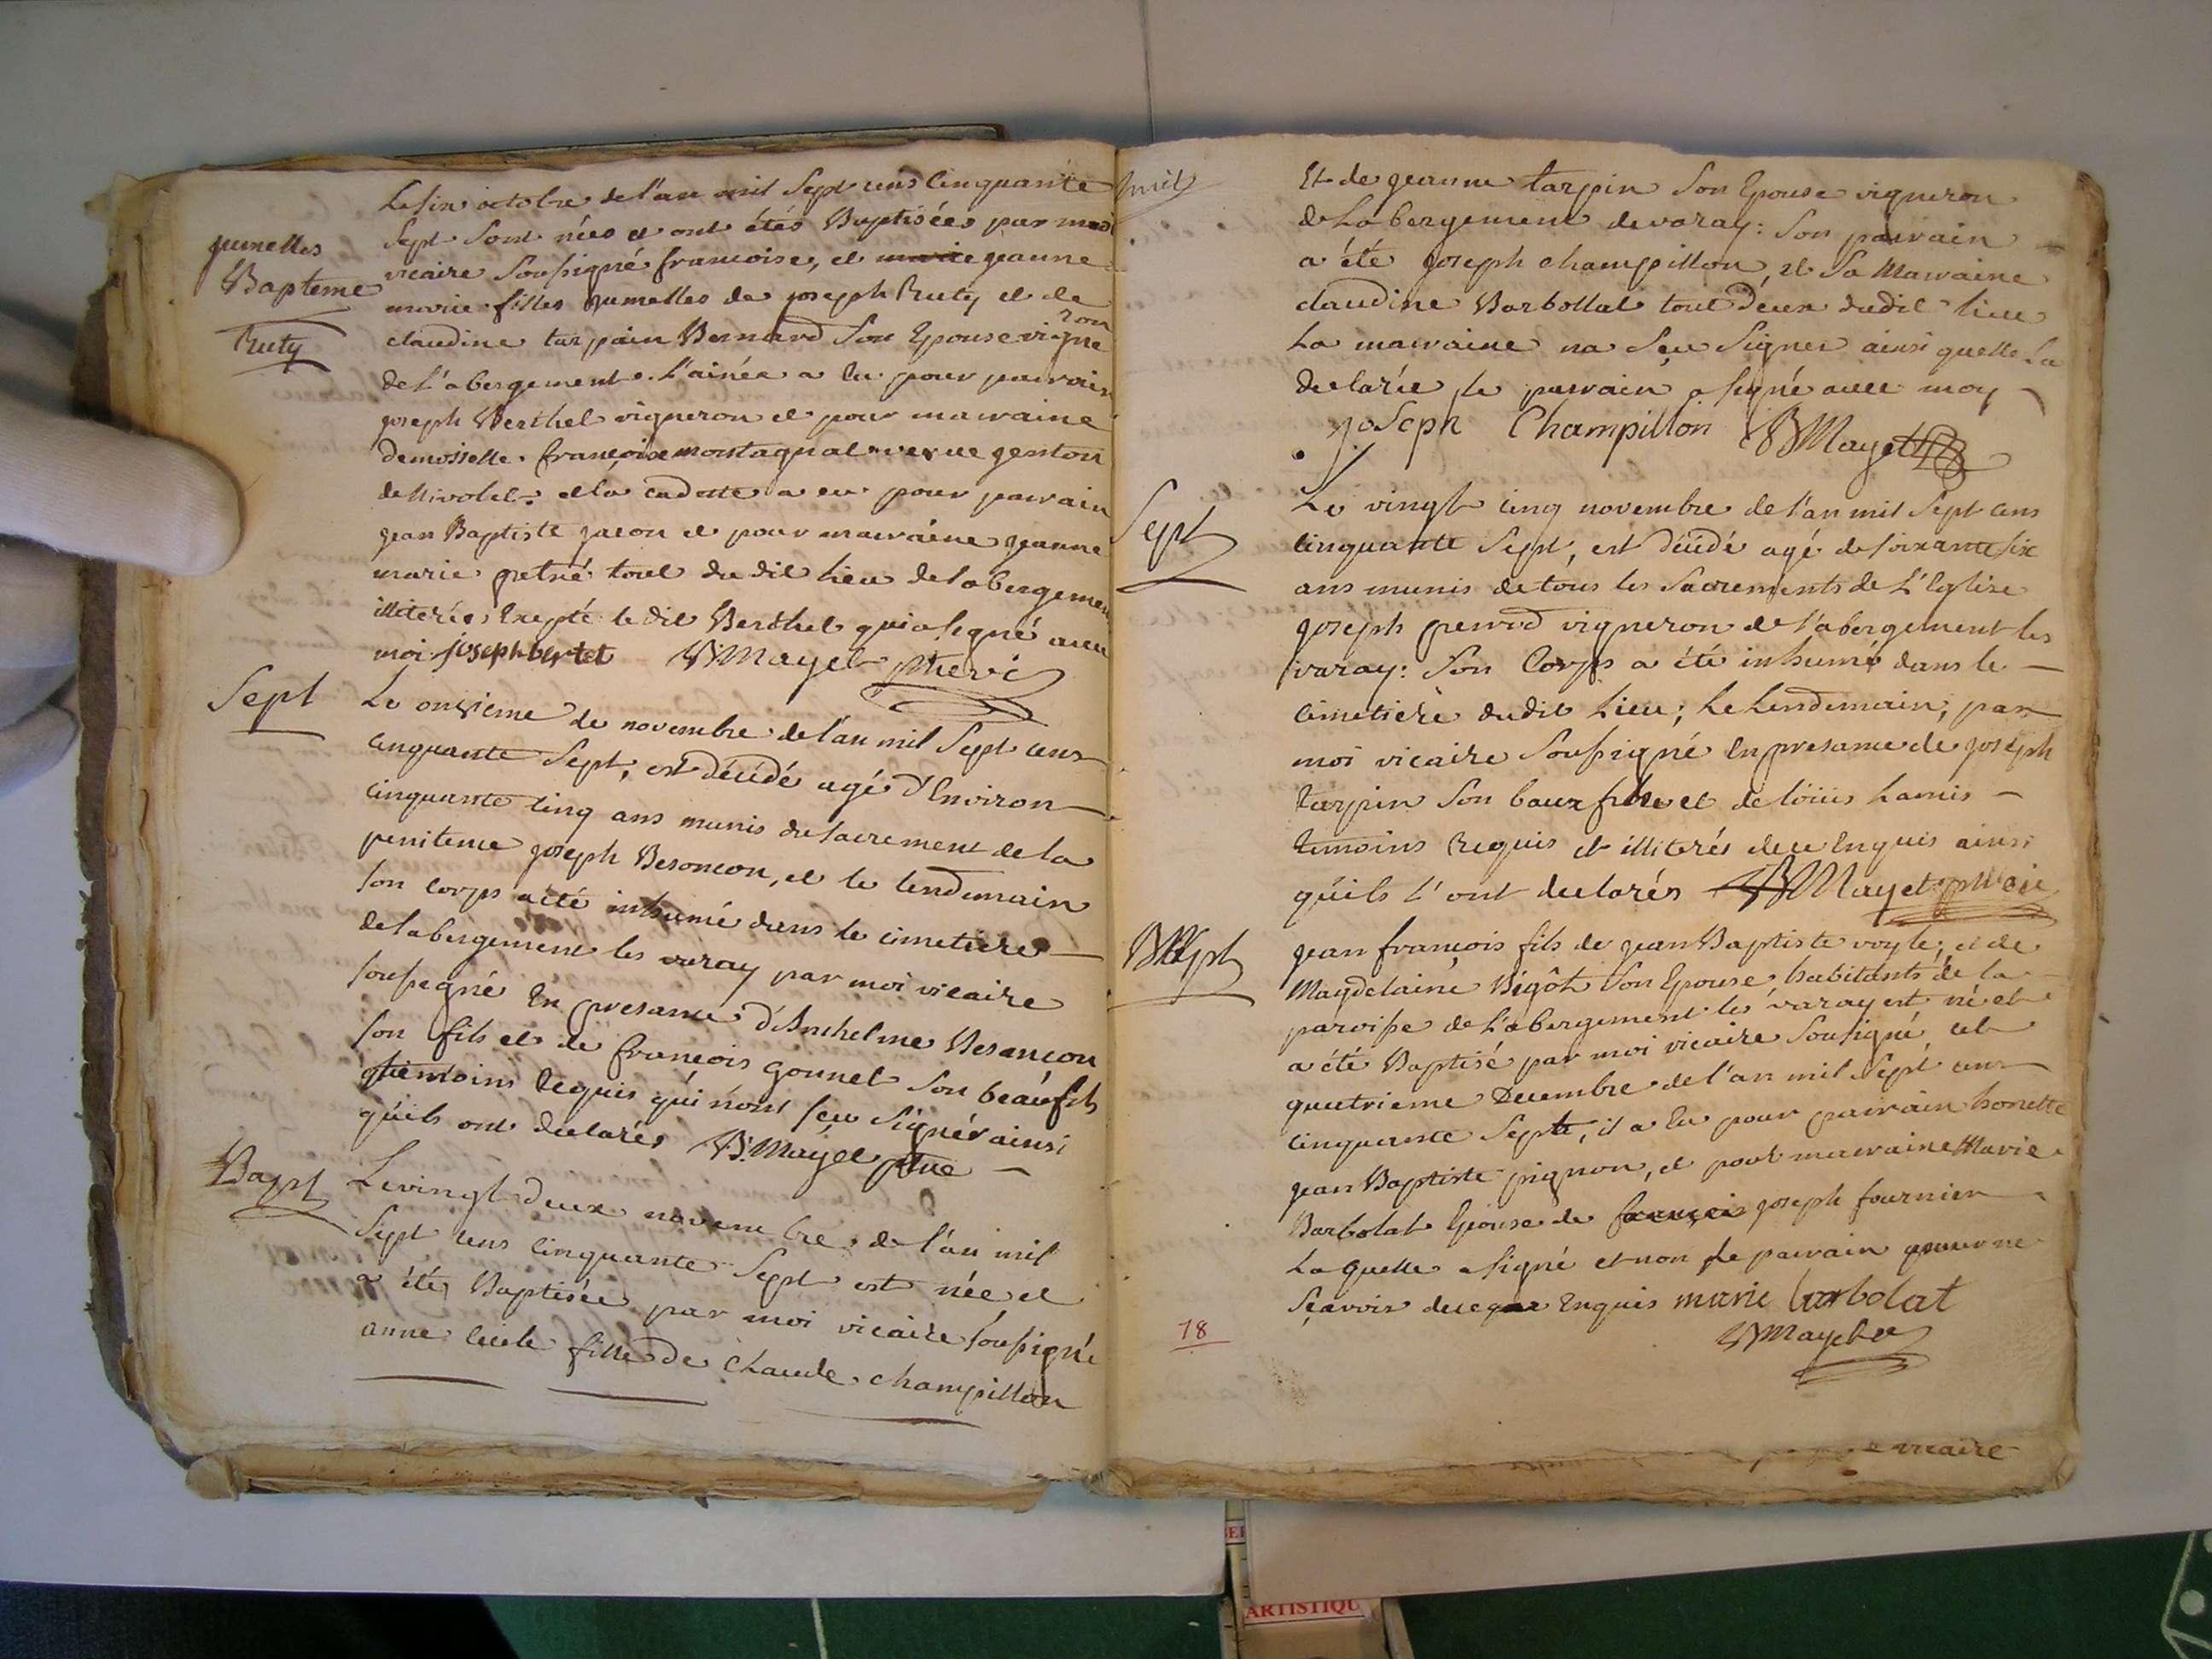 jumelles
Bapteme
Ruty
Le six octobre de l'an mil sept cens cinquante
sept sont nées et ont étés Baptisées par moi
vicaire soussigné francoise, et marie jeanne
marie filles jumelles de joseph Ruty et de
claudine tarpain Bernard son Epouse vigneron
de L'abergement. L'ainée a Eu pour parrain
joseph Berthet vigneron et pour marraine
demoiselle françoise montagnat veuve genton
de Nivolet. et la cadette a eu pour parrain
jean Baptiste jacon et pour marraine jeanne
marie tout du dit Lieu de labergement
illiterés Excepté le dit Berthet qui a signé avec
moi joseph bertet B Mayet
Sept
Le onzieme de novembre de l'an mil sept cens
cinquante sept, est décédé agé d'Environ
cinquante cinq ans munis du sacrement de la
penitence joseph Besoncon, et le lendemain
son corps a été inhumé dans le cimetiere
de labergement les varay par moi vicaire
soussigné En presance d'Anthelme Besançon
son fils et de françois gonnet son beaufils
temoins Requis qui n'ont seu signér ainsi
qu'ils ont declarés B. Mayet ptre
Bapt
Le vingt deux novembre de l'an mil
sept cens cinquante sept est née et
a été Baptisée par moi vicaire soussigné
anne fille de Claude champillon
Et de jeanne tarpin son Epouse vigneron
de Labergement de varay: son parrain
a été joseph champillon, et sa Marraine
claudine Barbollat tout deux dudit lieu
La marraine na seu signer ainsi quelle La
declarée, le parrain a signé avec moy
joseph Champillon B Mayet
Sept
Le vingt cinq novembre de l'an mil sept cens
cinquante sept, est décédé agé de soixante six
ans munis de tous les sacrements de L'Eglise
joseph vigneron de l'abergement les
varay: son Corps a été inhumé dans le
cimetiere dudit Lieu; Le lendemain, par
moi vicaire soussigné En presance de joseph
tarpin son baux frere et de löüis Lamis
temoins Requis et illiterés de ce Enquis ainsi
qu'ils l'ont declarés B Mayet
Bapt
jean françois fils de jean Baptiste voyle, et de
Magdelaine Bigôt son Epouse, habitants de la
paroisse de L'abergement les varay est né et
a été Baptisé par moi vicaire sousigné, cet
quatrieme Decembre de l'an mil sept cens
cinquante sept, il a Eu pour parrain honette
jean Baptiste pignon, et pour marraine Marie
Barbolat Epouse de françois joseph fournier
La quelle a signé et non le parrain pour ne
sçavoir de ce Enquis marie barbolat
B Mayet
18
vicaire